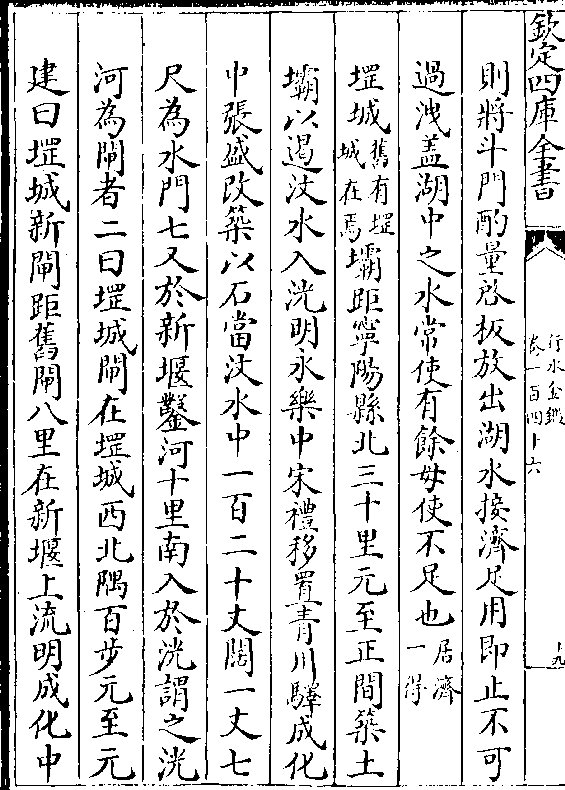 欽定四庫全書
行水金鑑
卷一百四十六
十九
則將斗門酌量啟板放出湖水接濟足用即止不可
過洩蓋湖中之水常使有餘毋使不足也居濟一得
堽城舊有堽城在焉壩距寧陽縣北三十里元至正間築土
壩以遏汶水入洸明永樂中宋禮移置青川驛成化
中張盛改築以石當汶水中一百二十丈闊一丈七
尺為水門七又於新堰鑿河十里南入於洸謂之洸
河為閘者二曰堽城閘在堽城西北隅百步元至元
建曰堽城新閘距舊閘八里在新堰上流明成化中